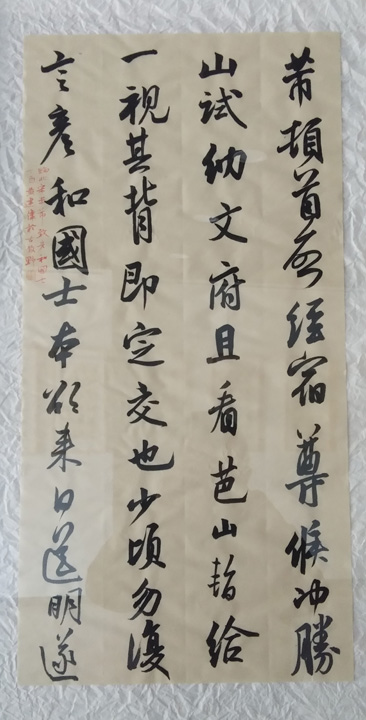 芾頓首启經宿尊候冲勝
山試納文府且看芭山暫給
一視其背即定交也少頃勿復
言彥和國士本欲來日送明遂